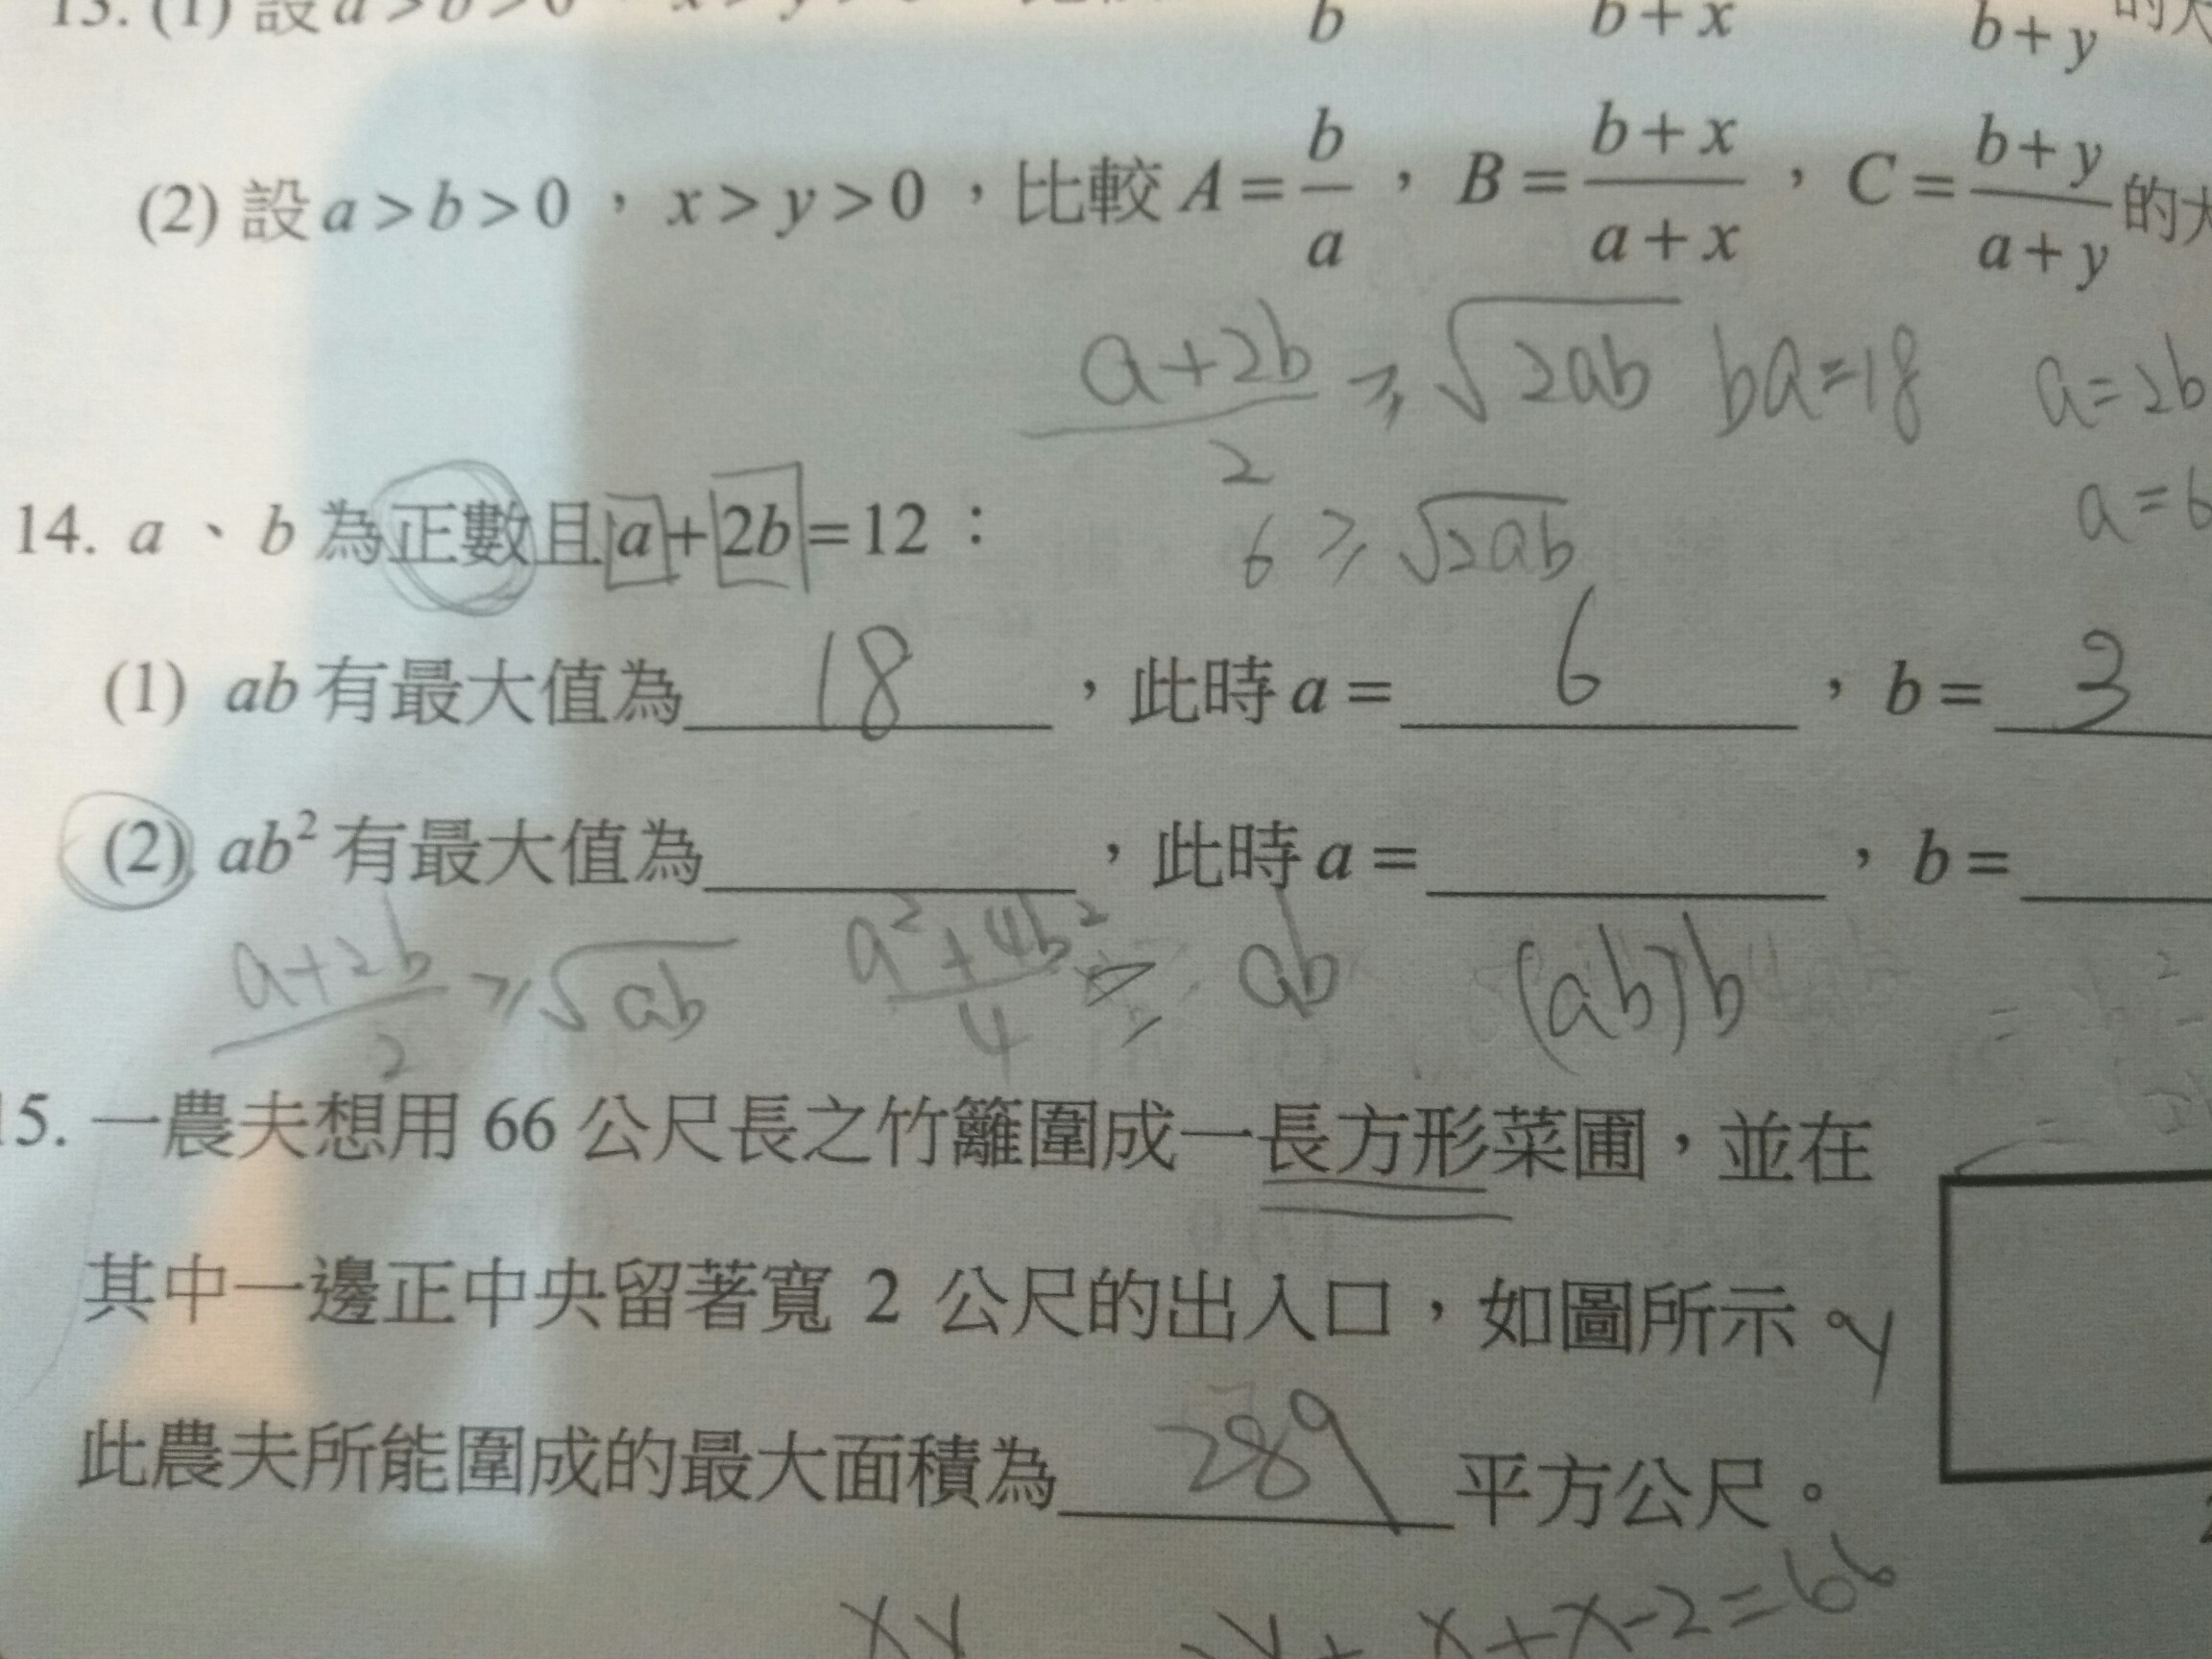 13. (1) 設 a > b > 0
b b + x b + y 的
(2) 設 a > b > 0 ， x > y > 0 ，比較 A = b/a ， B = (b + x)/(a + x) ， C = (b + y)/(a + y) 的
(a+2b)/2 ≥ √2ab ba=18 a=2b
6 ≥ √2ab a=6
14. a 、 b 為正數且 a + 2b = 12 ：
(1) ab 有最大值為 18 ，此時 a = 6 ， b = 3
(2) ab² 有最大值為 ，此時 a = ， b =
(a+2b)/2 ≥ √ab (a²+4b²)/4 ≥ ab (ab)b
15. 一農夫想用 66 公尺長之竹籬圍成一長方形菜圃，並在
其中一邊正中央留著寬 2 公尺的出入口，如圖所示 y
此農夫所能圍成的最大面積為 289 平方公尺。
xy y+ x+x-2=66